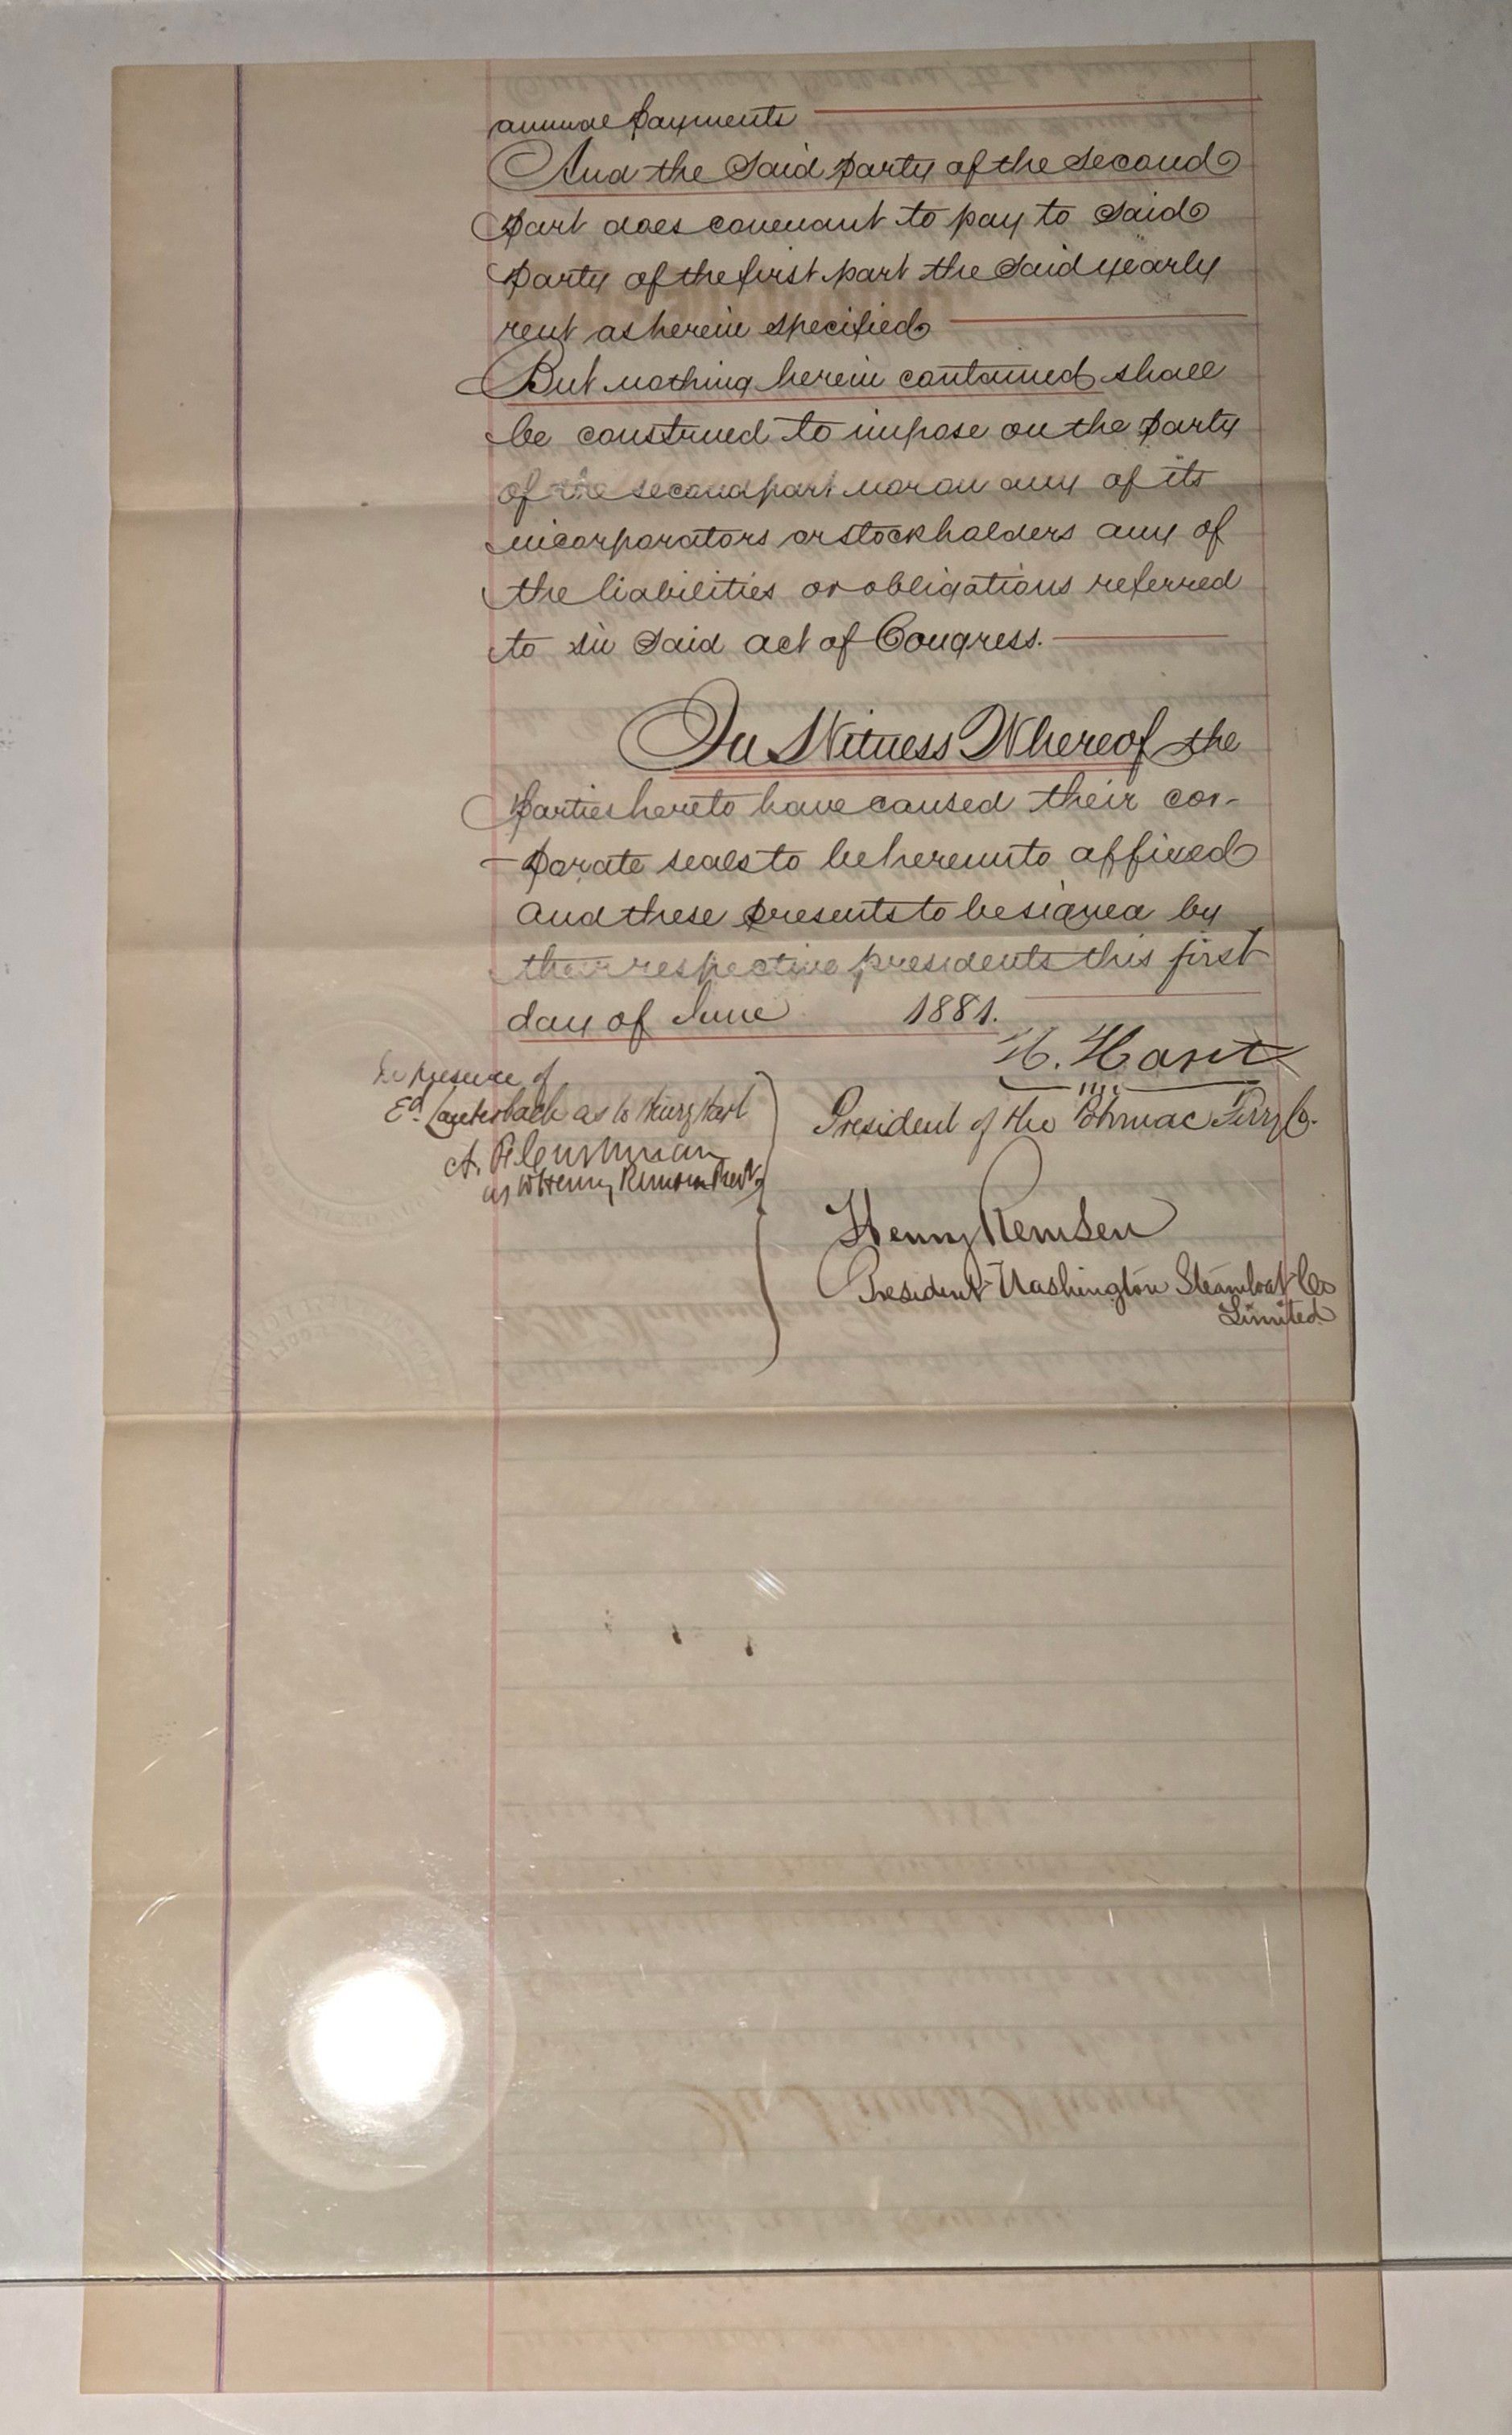 annual payments
And the said party of the second
part does covenant to pay to said
party of the first part the said yearly
rent as herein specified
But nothing herein contained shall
be construed to impose on the party
of the second part nor on any of its
incorporators or stockholders any of
the liabilities or obligations referred
to in said act of Congress.
In Witness Whereof the
parties hereto have caused their cor-
-porate seals to be hereunto affixed
and these presents to be signed by
their respective presidents this first
day of June 1881.
H. Hart
In presence of
Ed. Lauterbach as to Henry Hart
President of the Potomac Ferry Co.
A.
as to Henry Remsen Prest.
Henry Remsen
President Washington Steamboat Co
Limited